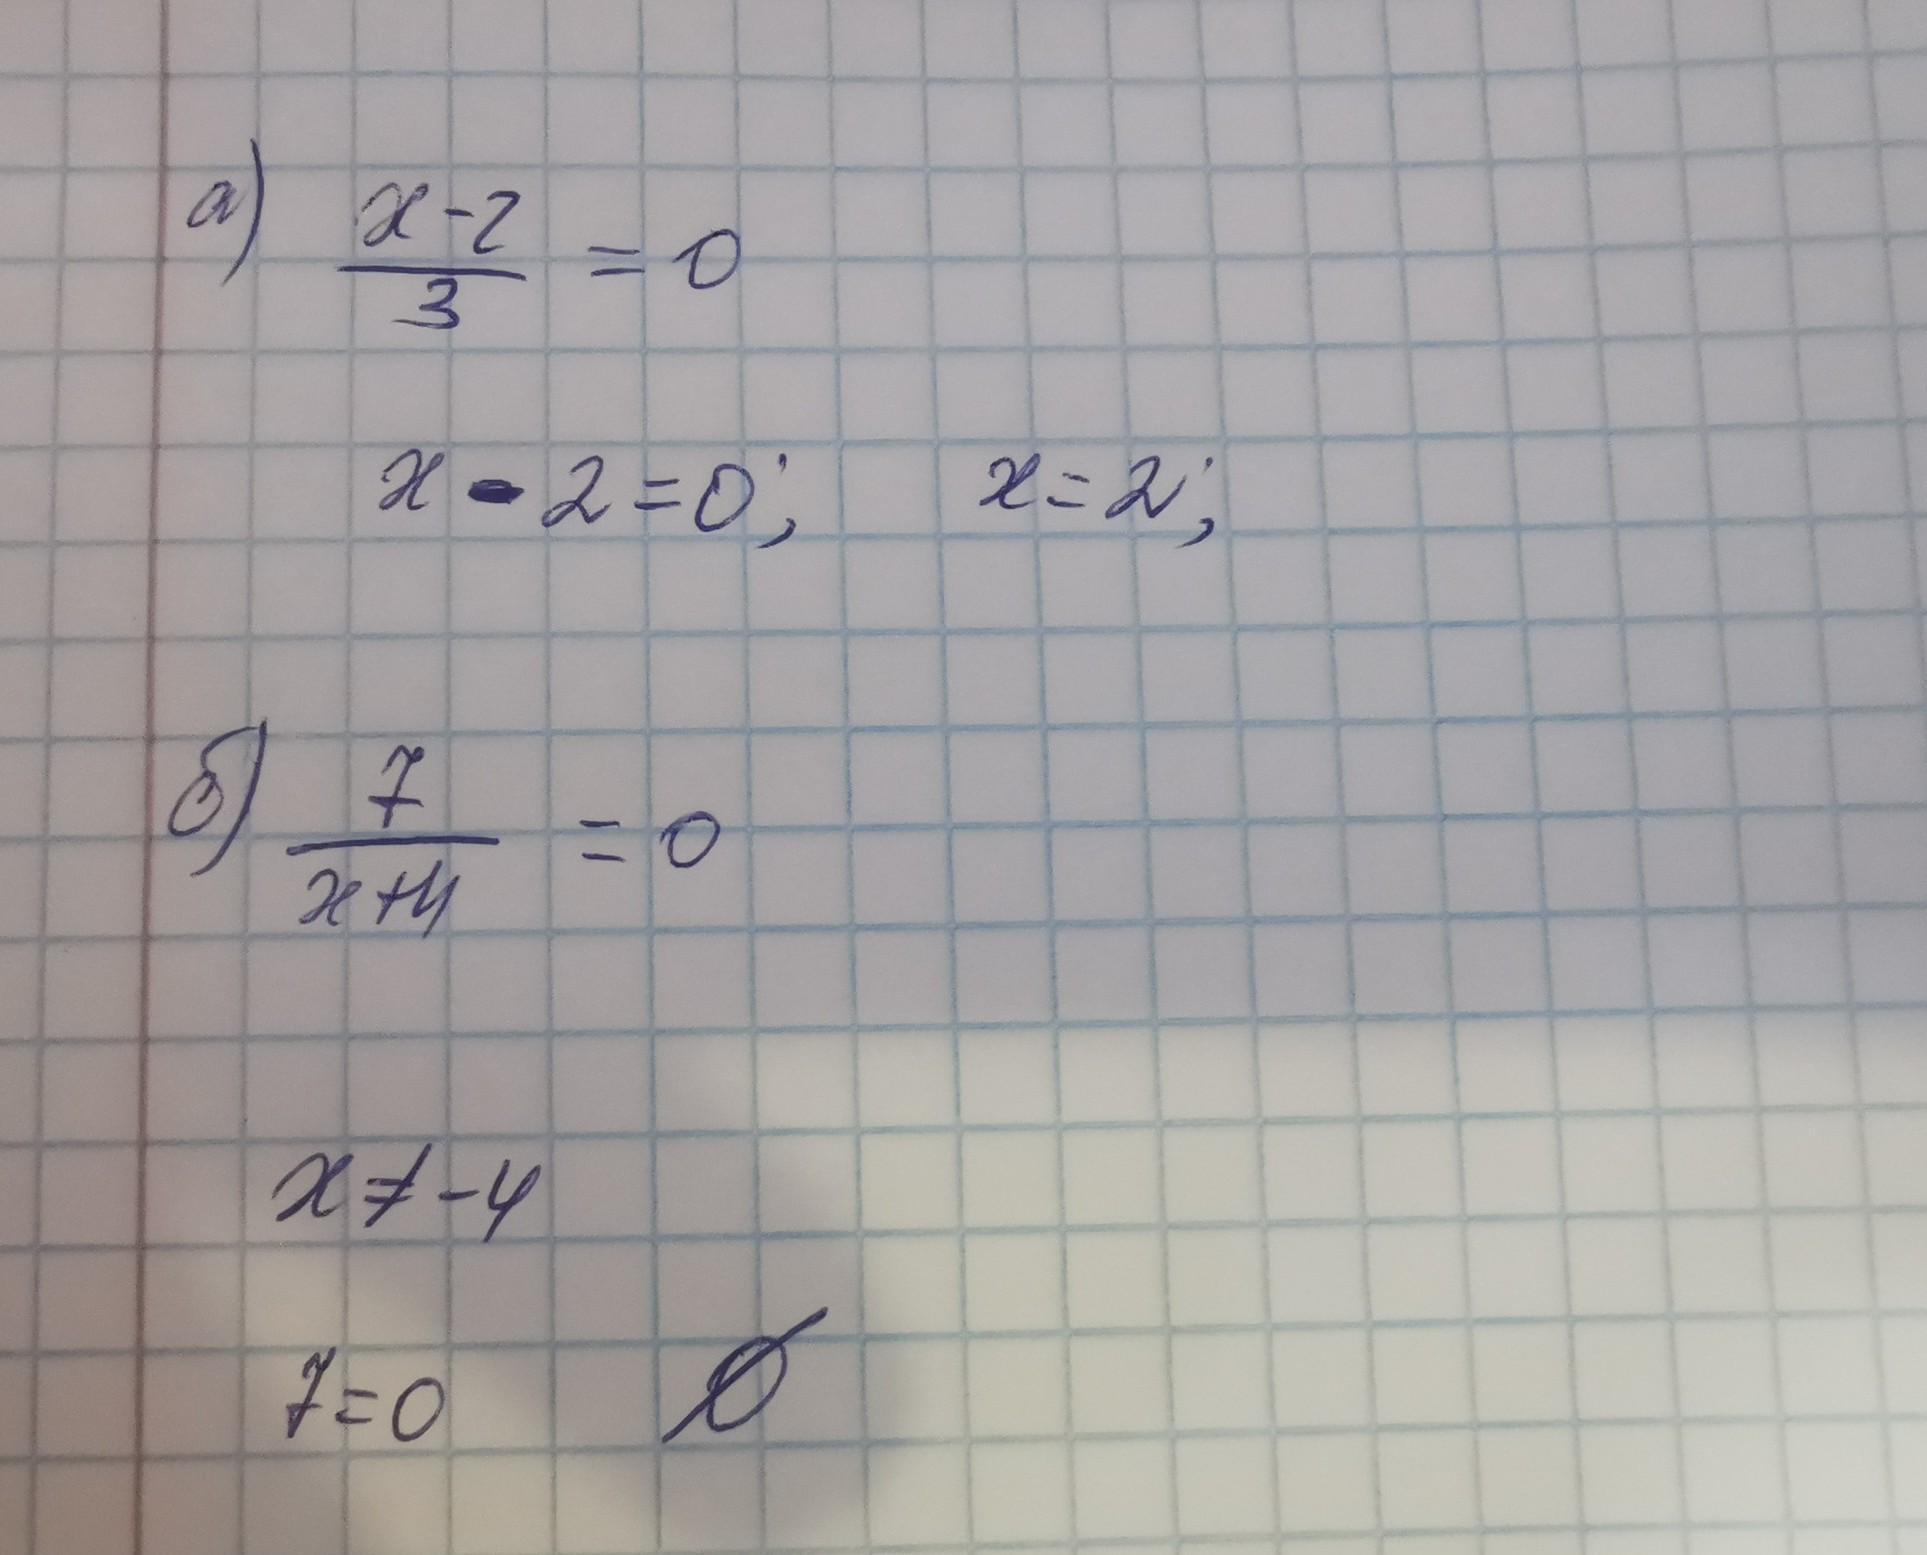 а) (x-2)/3 = 0
x - 2 = 0; x = 2;
б) 7/(x+4) = 0
x ≠ -4
7 = 0 ∅